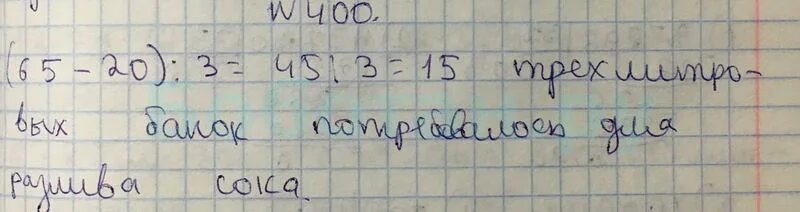 N 400.
(65 - 20) : 3 = 45 : 3 = 15 трехлитро-
вых банок потребовалось для
разлива сока.